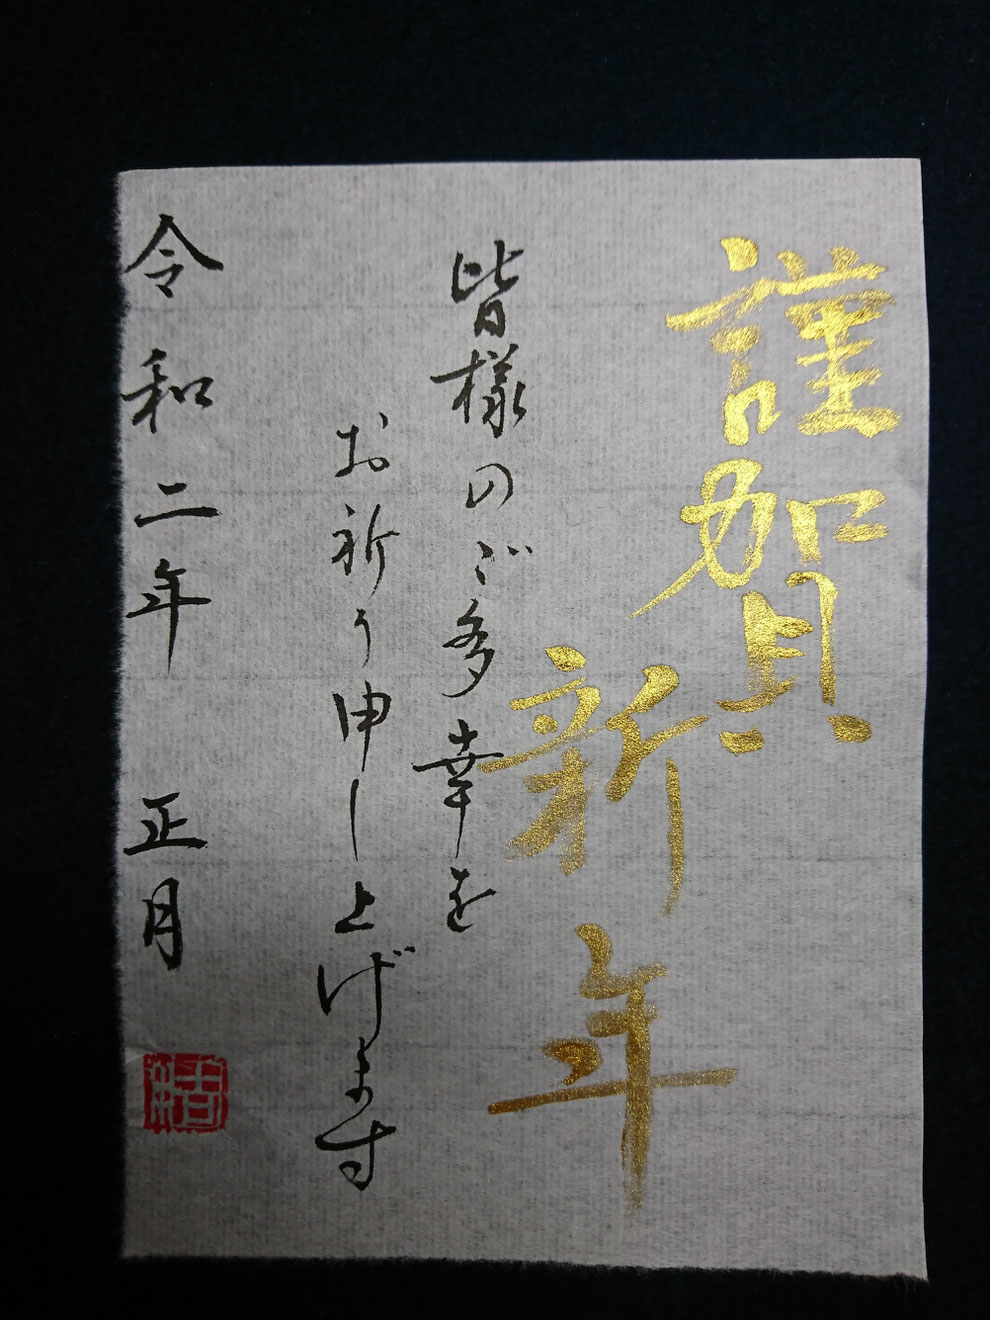 謹賀
新年
皆様のご多幸を
お祈り申し上げます
令和二年 正月
結